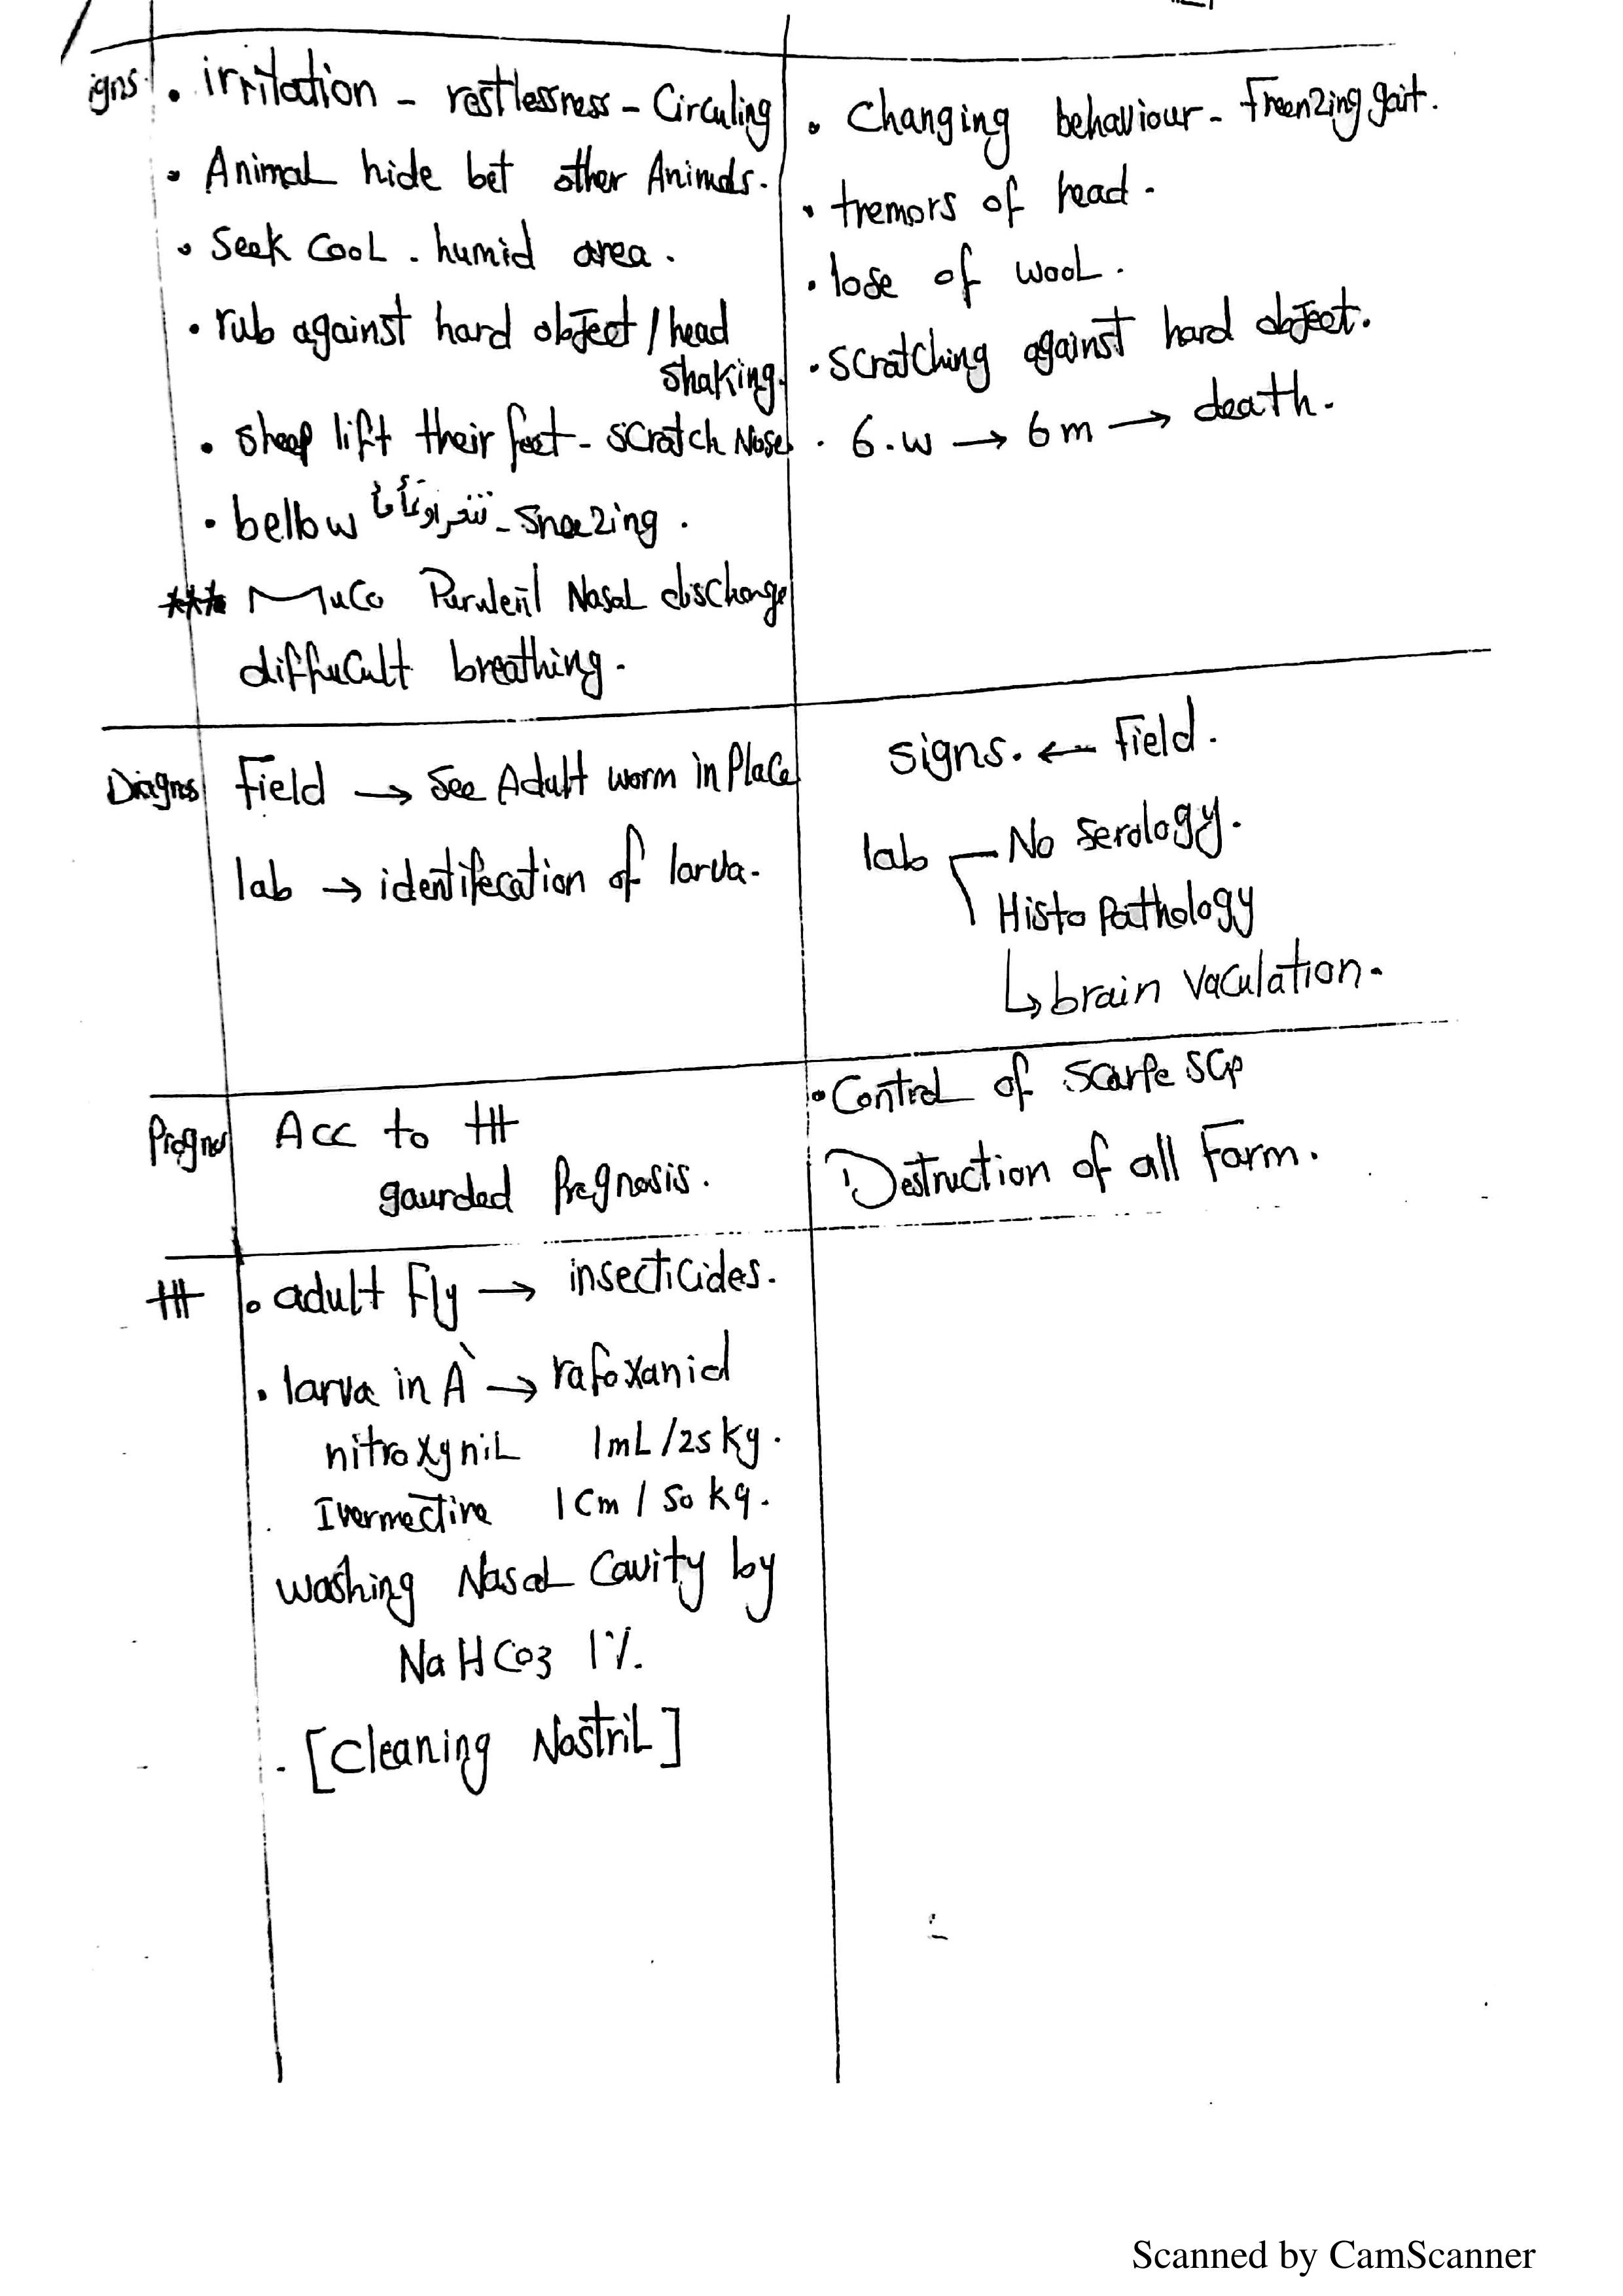 igns
. irritation - restlessness - Circuling
. Animal hide bet other Animals.
. Seek Cool . humid area .
. rub against hard object / head
shaking.
. sheep lift their feet - scratch Nose
. bellow - Sneezing .
*** Muco Purulent Nasal discharge
difficult breathing.
. Changing behaviour - Freenzing gait.
. tremors of head .
. lose of wool .
. scratching against hard object.
. 6.w → 6m → death.
Diagnos
Field → See Adult worm in Place
lab → identifecation of larva.
signs. ← Field.
lab No serology.
Histo Pathology
↳ brain vaculation.
Prognos
Acc to ttt
gaurded Prognosis.
. Control of Scarpe
Destruction of all Farm.
ttt
. adult Fly → insecticides.
. larva in A → rafoxanid
nitroxynil 1mL/25 kg.
Ivermectine 1Cm / 50 kg.
washing Nasal Cavity by
NaHCo3 1%
. [Cleaning Nostril]
Scanned by CamScanner